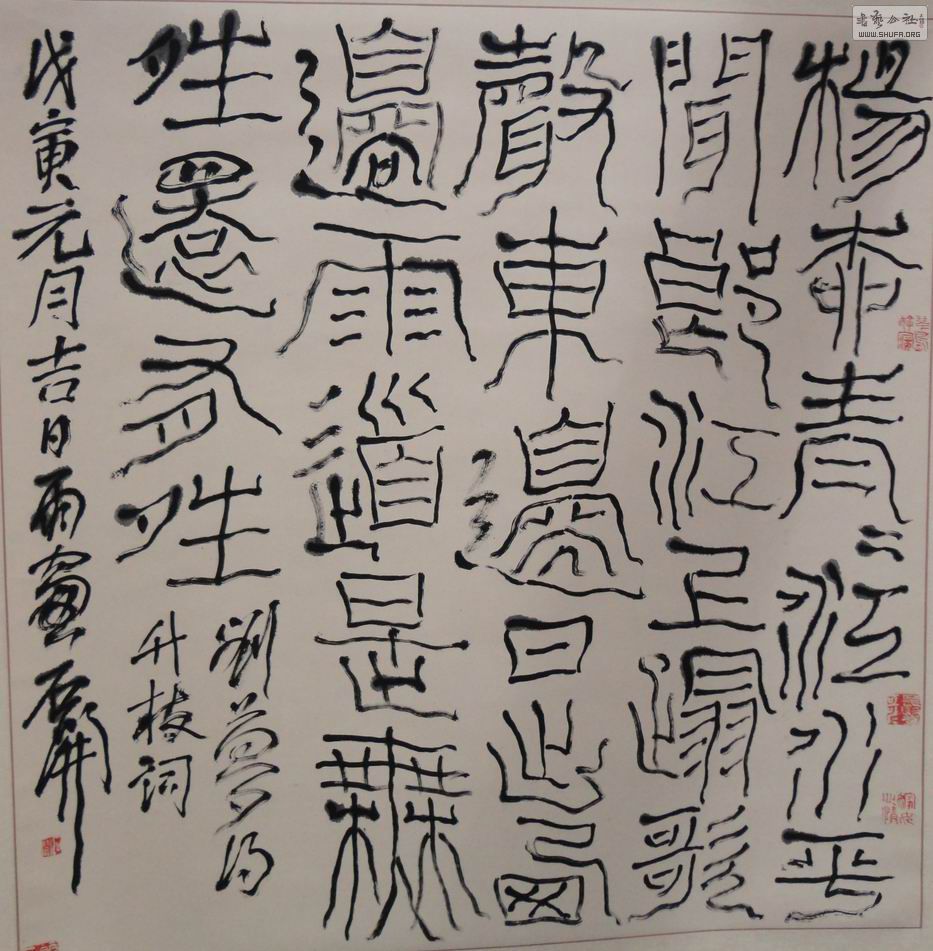 楊柳青〻江水平
聞郎江上蹋歌
聲東邊日出西
邊雨道是無
晴還有晴
劉夢得
竹枝詞
戊寅元月吉日雨窗石開
書藝公社
WWW.SHUFA.ORG